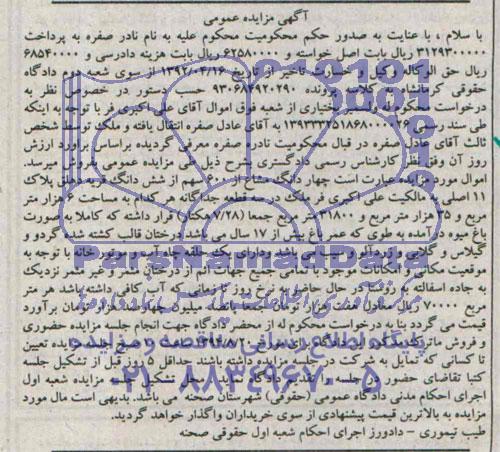 آگهی مزایده عمومی
با سلام ، با عنایت به صدور حکم محکومیت محکوم علیه به نام نادر صفره به پرداخت
۳۱۲۹۳۰۰۰۰۰ ریال بابت اصل خواسته و ۶۲۵۸۰۰۰۰ ریال بابت هزینه دادرسی و ۶۸۵۴۰۰۰۰
ریال حق الوکاله وکیل و خسارت تاخیر از تاریخ ۱۳۹۲/۰۴/۱۶ از سوی شعبه دوم دادگاه
حقوقی کرمانشاه به کلاسه پرونده ۹۳۰۶۸۴۹۲۰۲۹۰ حسب دستور در خصوص نظر به
درخواست محکوم له واست اختیاری از شعبه فوق اموال آقای علی اکبری فر با توجه به اینکه
طی سند رسمی به آقای عادل صفره انتقال یافته و ملک توسط شخص
ثالث آقای عادل صفره در قبال محکومیت نادر صفره معرفی گردیده براساس برآورد ارزش
روز آن وفق نظر کارشناس رسمی دادگستری بشرح ذیل طی مزایده عمومی بفروش میرسد.
اموال مورد مزایده عبارت است چهار دانگ مشاع از ۶۰۰ سهم از شش دانگ پلاک
۱۱ اصلی به مالکیت علی اکبری فر ملک در سه قطعه جداگانه هر کدام به مساحت ۶ هزار متر
مربع و ۳۵ هزار متر مربع و ۳۱۸۰۰ متر مربع جمعا (۷/۲۸ هکتار) قرار داشته که کاملا به صورت
باغ میوه درآمده به طوی که عمر باغ بیش از ۱۷ سال می باشد درختان قالب کشته شده گردو و
گیلاس و گلابی و زردآلو و سیب می باشد ودارای یک حلقه چاه آب و موتور خانه با توجه به
موقعیت مکانی و امکانات موجود با تمامی جمیع جهات اعم از درختان مثمر و غیر مثمر نزدیک
به جاده اسفالته به روستا در حال حاضر به نرخ روز تا زمانی که آب کافی داشته باشد هر متر
مربع ۷۰۰۰۰ ریال معادل هفت هزار تومان جمعا پانصد میلیون چهارصد هزار تومان برآورد
قیمت می گردد بنا به درخواست محکوم له از محضر دادگاه جهت انجام جلسه مزایده حضوری
و فروش جلسه مزایده تعیین
تا کسانی که تمایل به شرکت در جلسه مزایده داشته باشند حداقل ۵ روز قبل از تشکیل جلسه
کتبا تقاضای حضور در جلسه را تقدیم دادگاه محل تشکیل جلسه مزایده شعبه اول
اجرای احکام مدنی دادگاه عمومی (حقوقی) شهرستان صحنه می باشد. بدیهی است مال مورد
مزایده به بالاترین قیمت پیشنهادی از سوی خریداران واگذار خواهد گردید.
طیب تیموری - دادورز اجرای احکام شعبه اول حقوقی صحنه
ParsNamadData
پایگاه اطلاع رسانی مناقصه و مزایده
۰۲۱-۸۸۳۴۹۶۷۰-۵